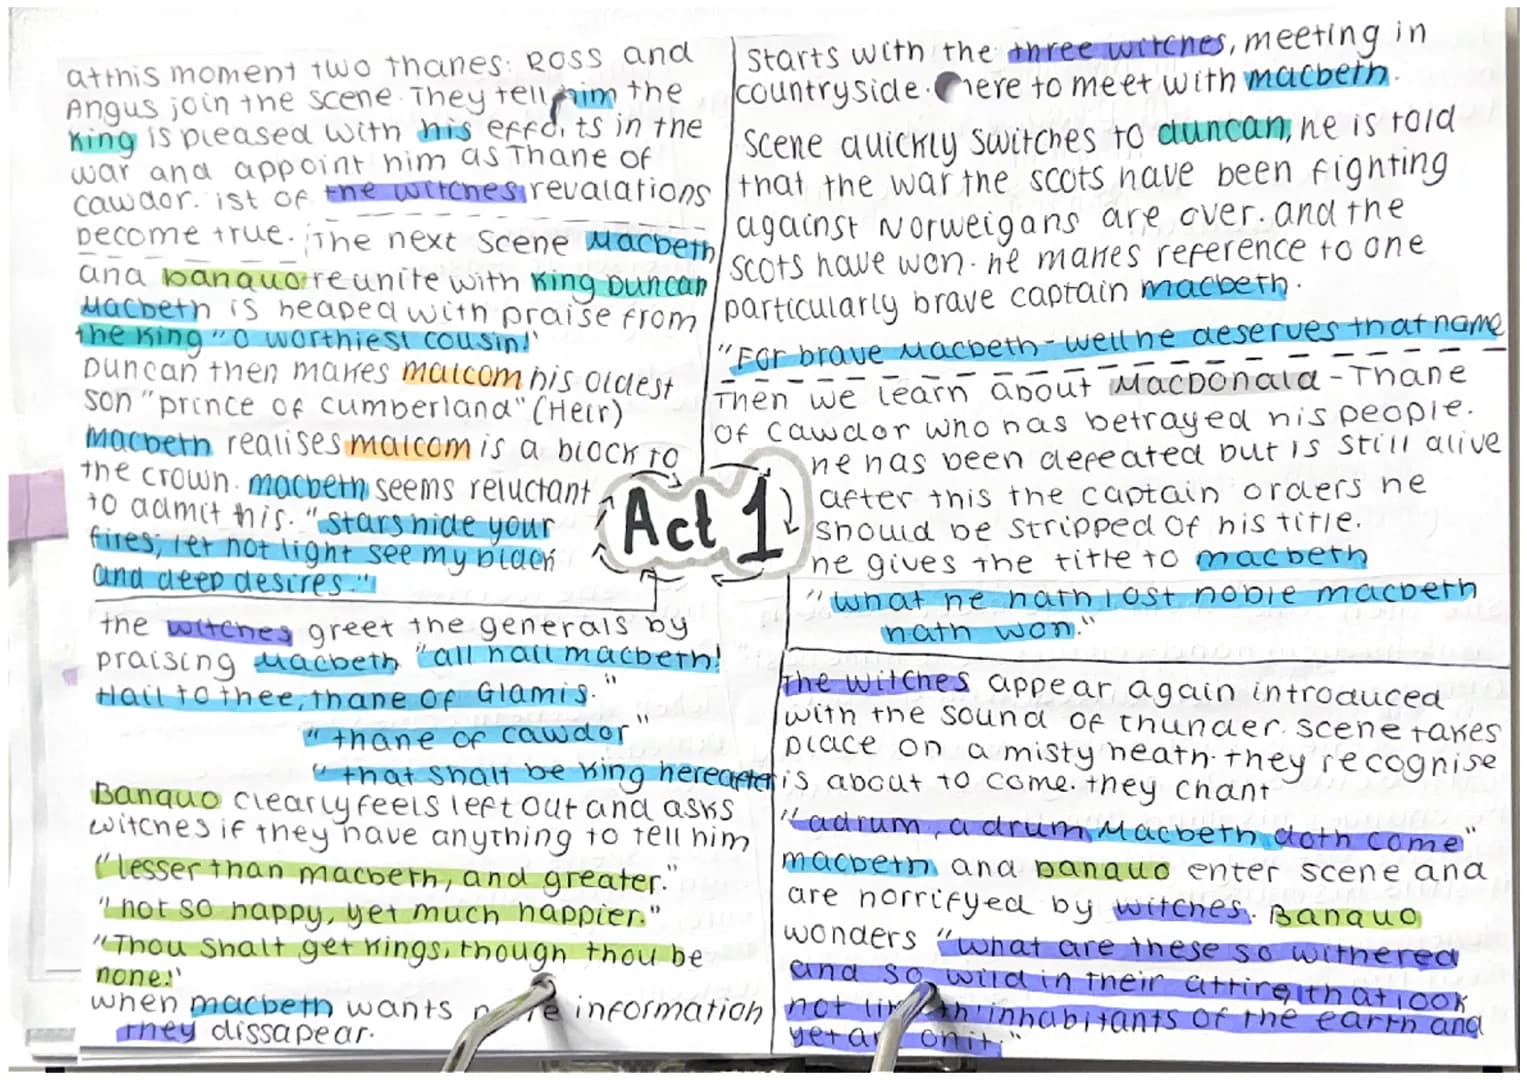 Starts with the three witches, meeting in
countryside. here to meet with macbeth.
Scene quickly switches to duncan, he is told
that the war the scots have been fighting
against Norweigans are over. and the
scots have won. he makes reference to one
particularly brave captain macbeth.
"For brave Macbeth - well he deserves that name
Then we learn about MacDonald - Thane
of Cawdor who has betrayed his people.
he has been defeated but is still alive
after this the captain orders he
should be stripped of his title.
he gives the title to macbeth
"what he hath lost noble macbeth
hath won."
The witches appear again introduced
with the sound of thunder. scene takes
place on a misty heath. they recognise
is about to come. they chant
"a drum, a drum Macbeth doth come"
macbeth and banquo enter scene and
are horrifyed by witches. Banquo
wonders "what are these so withered
and so wild in their attire, that look
not th' inhabitants of the earth and
yet are on it."
Act 1
the witches greet the generals by
praising Macbeth "all hail macbeth!
Hail to thee, thane of Glamis."
"thane of cawdor"
"that shalt be king hereafter
Banquo clearly feels left out and asks
witches if they have anything to tell him
"lesser than macbeth, and greater."
"not so happy, yet much happier."
"Thou shalt get kings, though thou be
none!"
when macbeth wants more information
they dissapear.
at this moment two thanes: Ross and
Angus join the scene. They tell him the
king is pleased with his efforts in the
war and appoint him as Thane of
cawdor. 1st of the witches revalations
become true. The next scene Macbeth
and banquo reunite with King Duncan
Macbeth is heaped with praise from
the king "O worthiest cousin!"
Duncan then makes malcom his oldest
son "prince of cumberland" (Heir)
Macbeth realises malcom is a block to
the crown. macbeth seems reluctant
to admit this. "stars hide your
fires; let not light see my black
and deep desires."